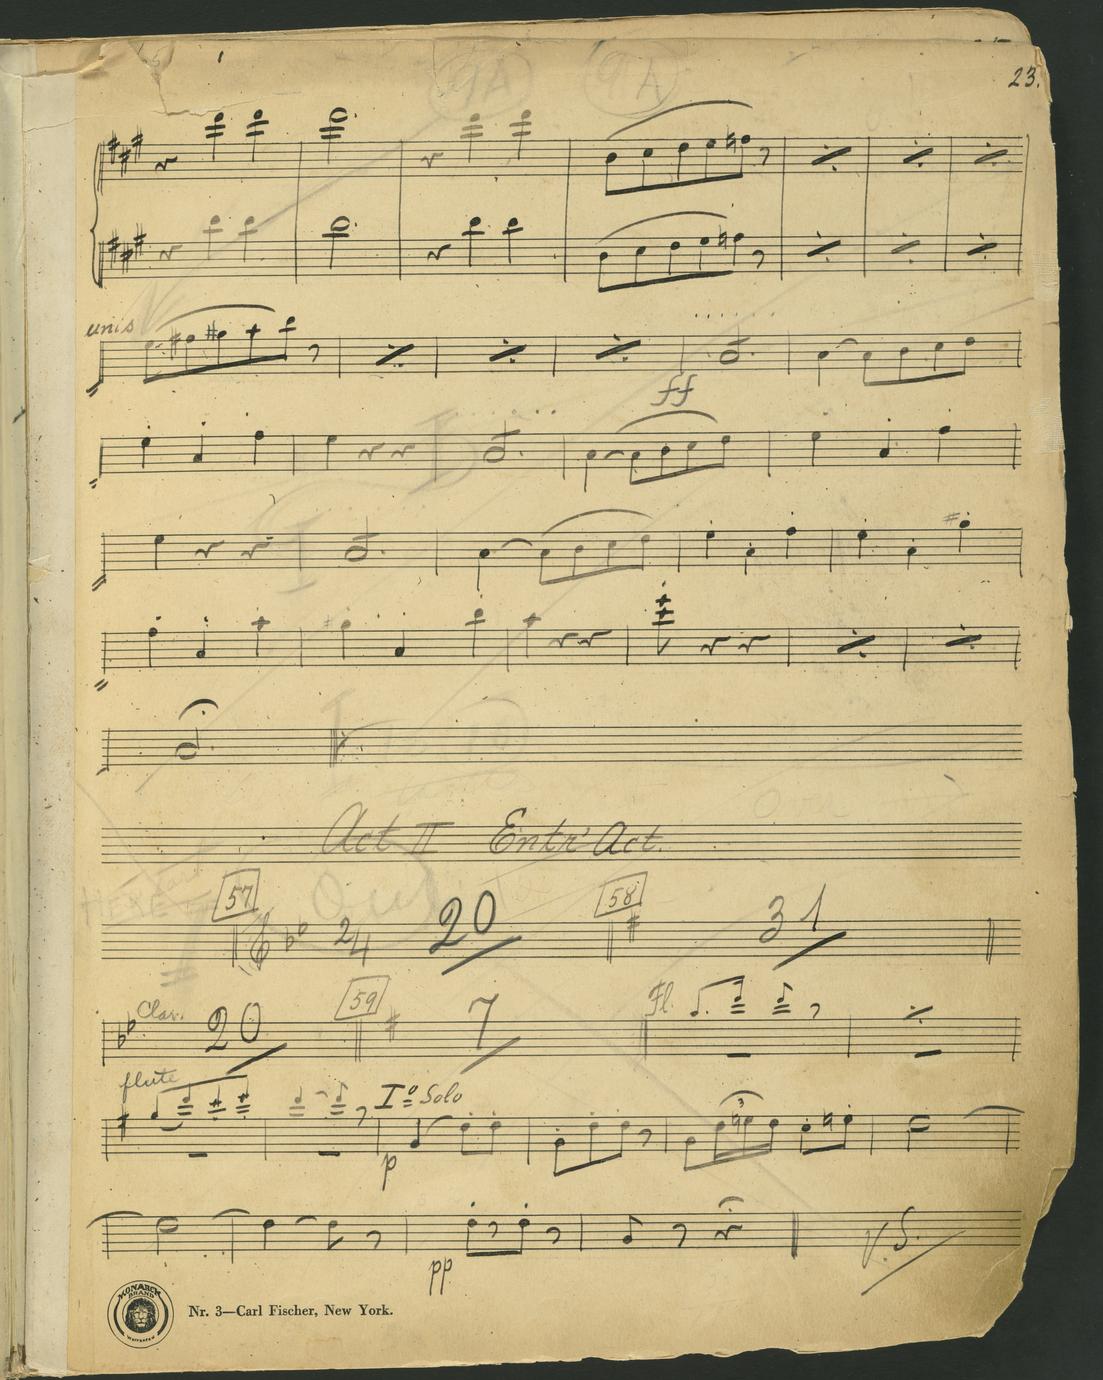 9A 9A
23.
unis
ff
Act II Entr' Act.
57 58
2/4 20 31
Clar. 20 59 7 Fl.
flute
Iº Solo
3
p
pp
V.S.
MONARCH BRAND
Nr. 3—Carl Fischer, New York.